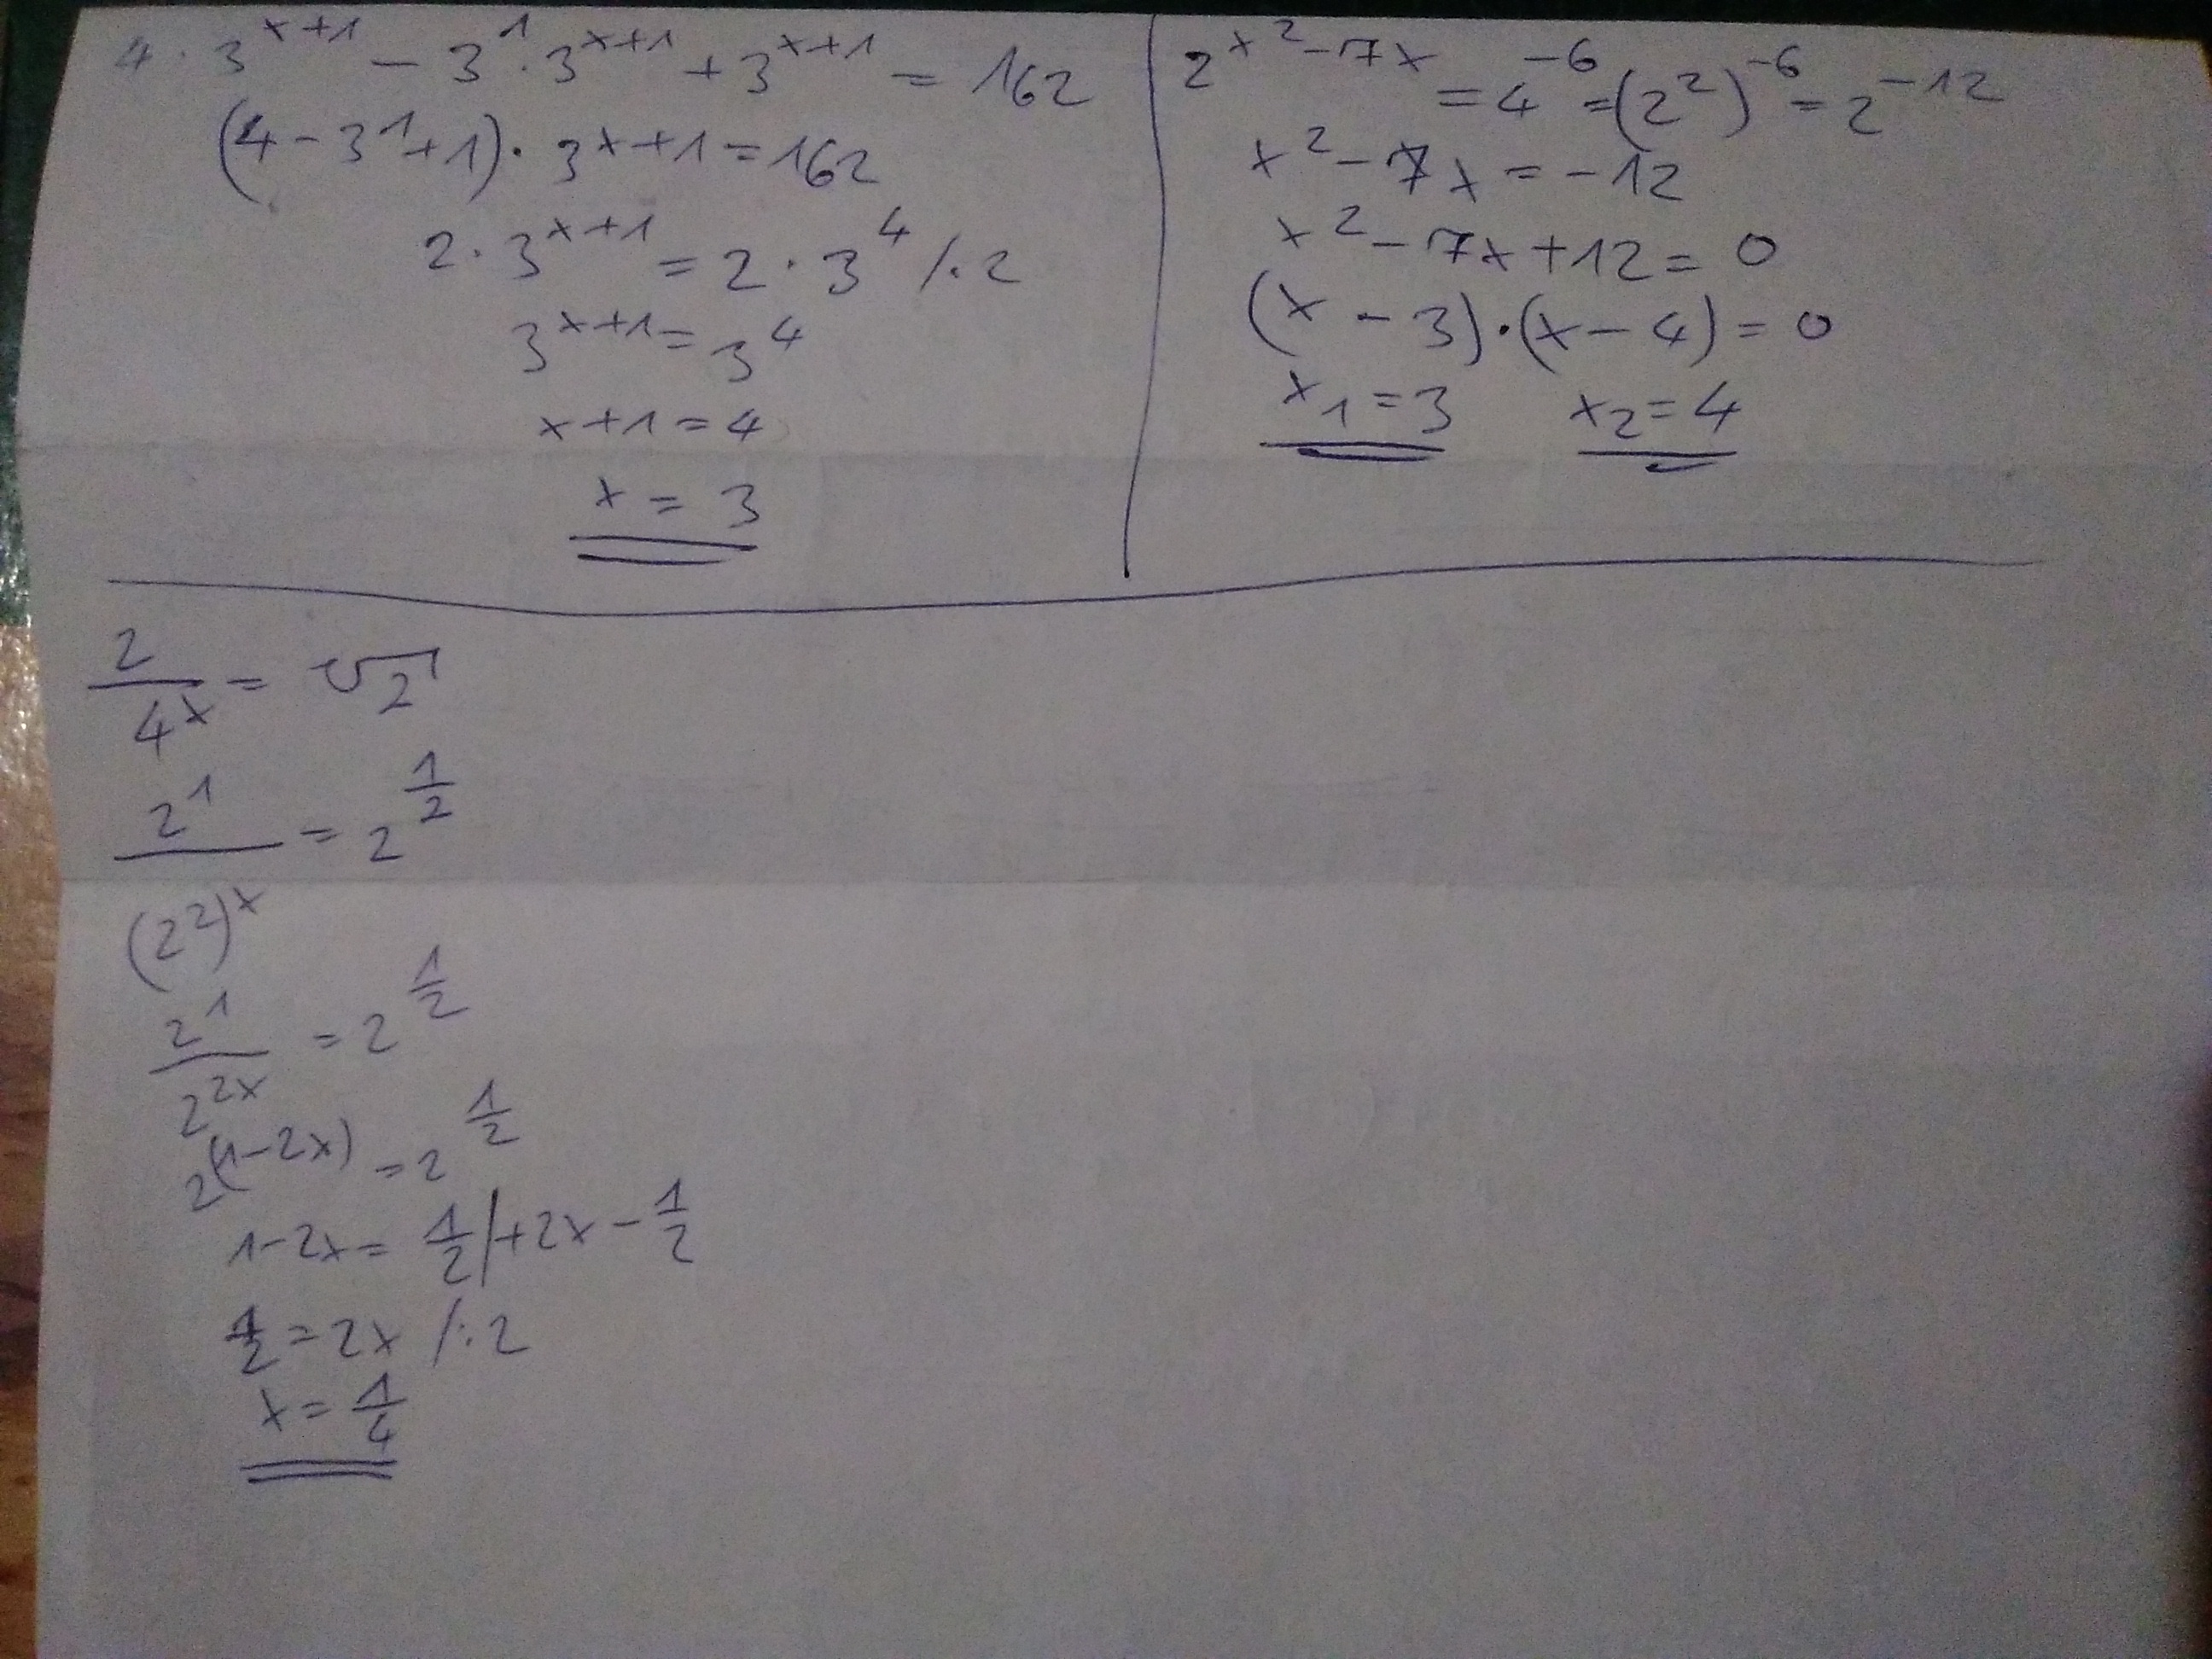 4 · 3^(x+1) - 3^1 · 3^(x+1) + 3^(x+1) = 162
(4 - 3^1 + 1) · 3^(x+1) = 162
2 · 3^(x+1) = 2 · 3^4 /:2
3^(x+1) = 3^4
x + 1 = 4
x = 3
2^(x^2 - 7x) = 4^(-6) = (2^2)^(-6) = 2^(-12)
x^2 - 7x = -12
x^2 - 7x + 12 = 0
(x - 3) · (x - 4) = 0
x_1 = 3 x_2 = 4
2/4^x = √2
2^1/(2^2)^x = 2^(1/2)
2^1/2^(2x) = 2^(1/2)
2^(1-2x) = 2^(1/2)
1 - 2x = 1/2 | +2x - 1/2
1/2 = 2x /:2
x = 1/4